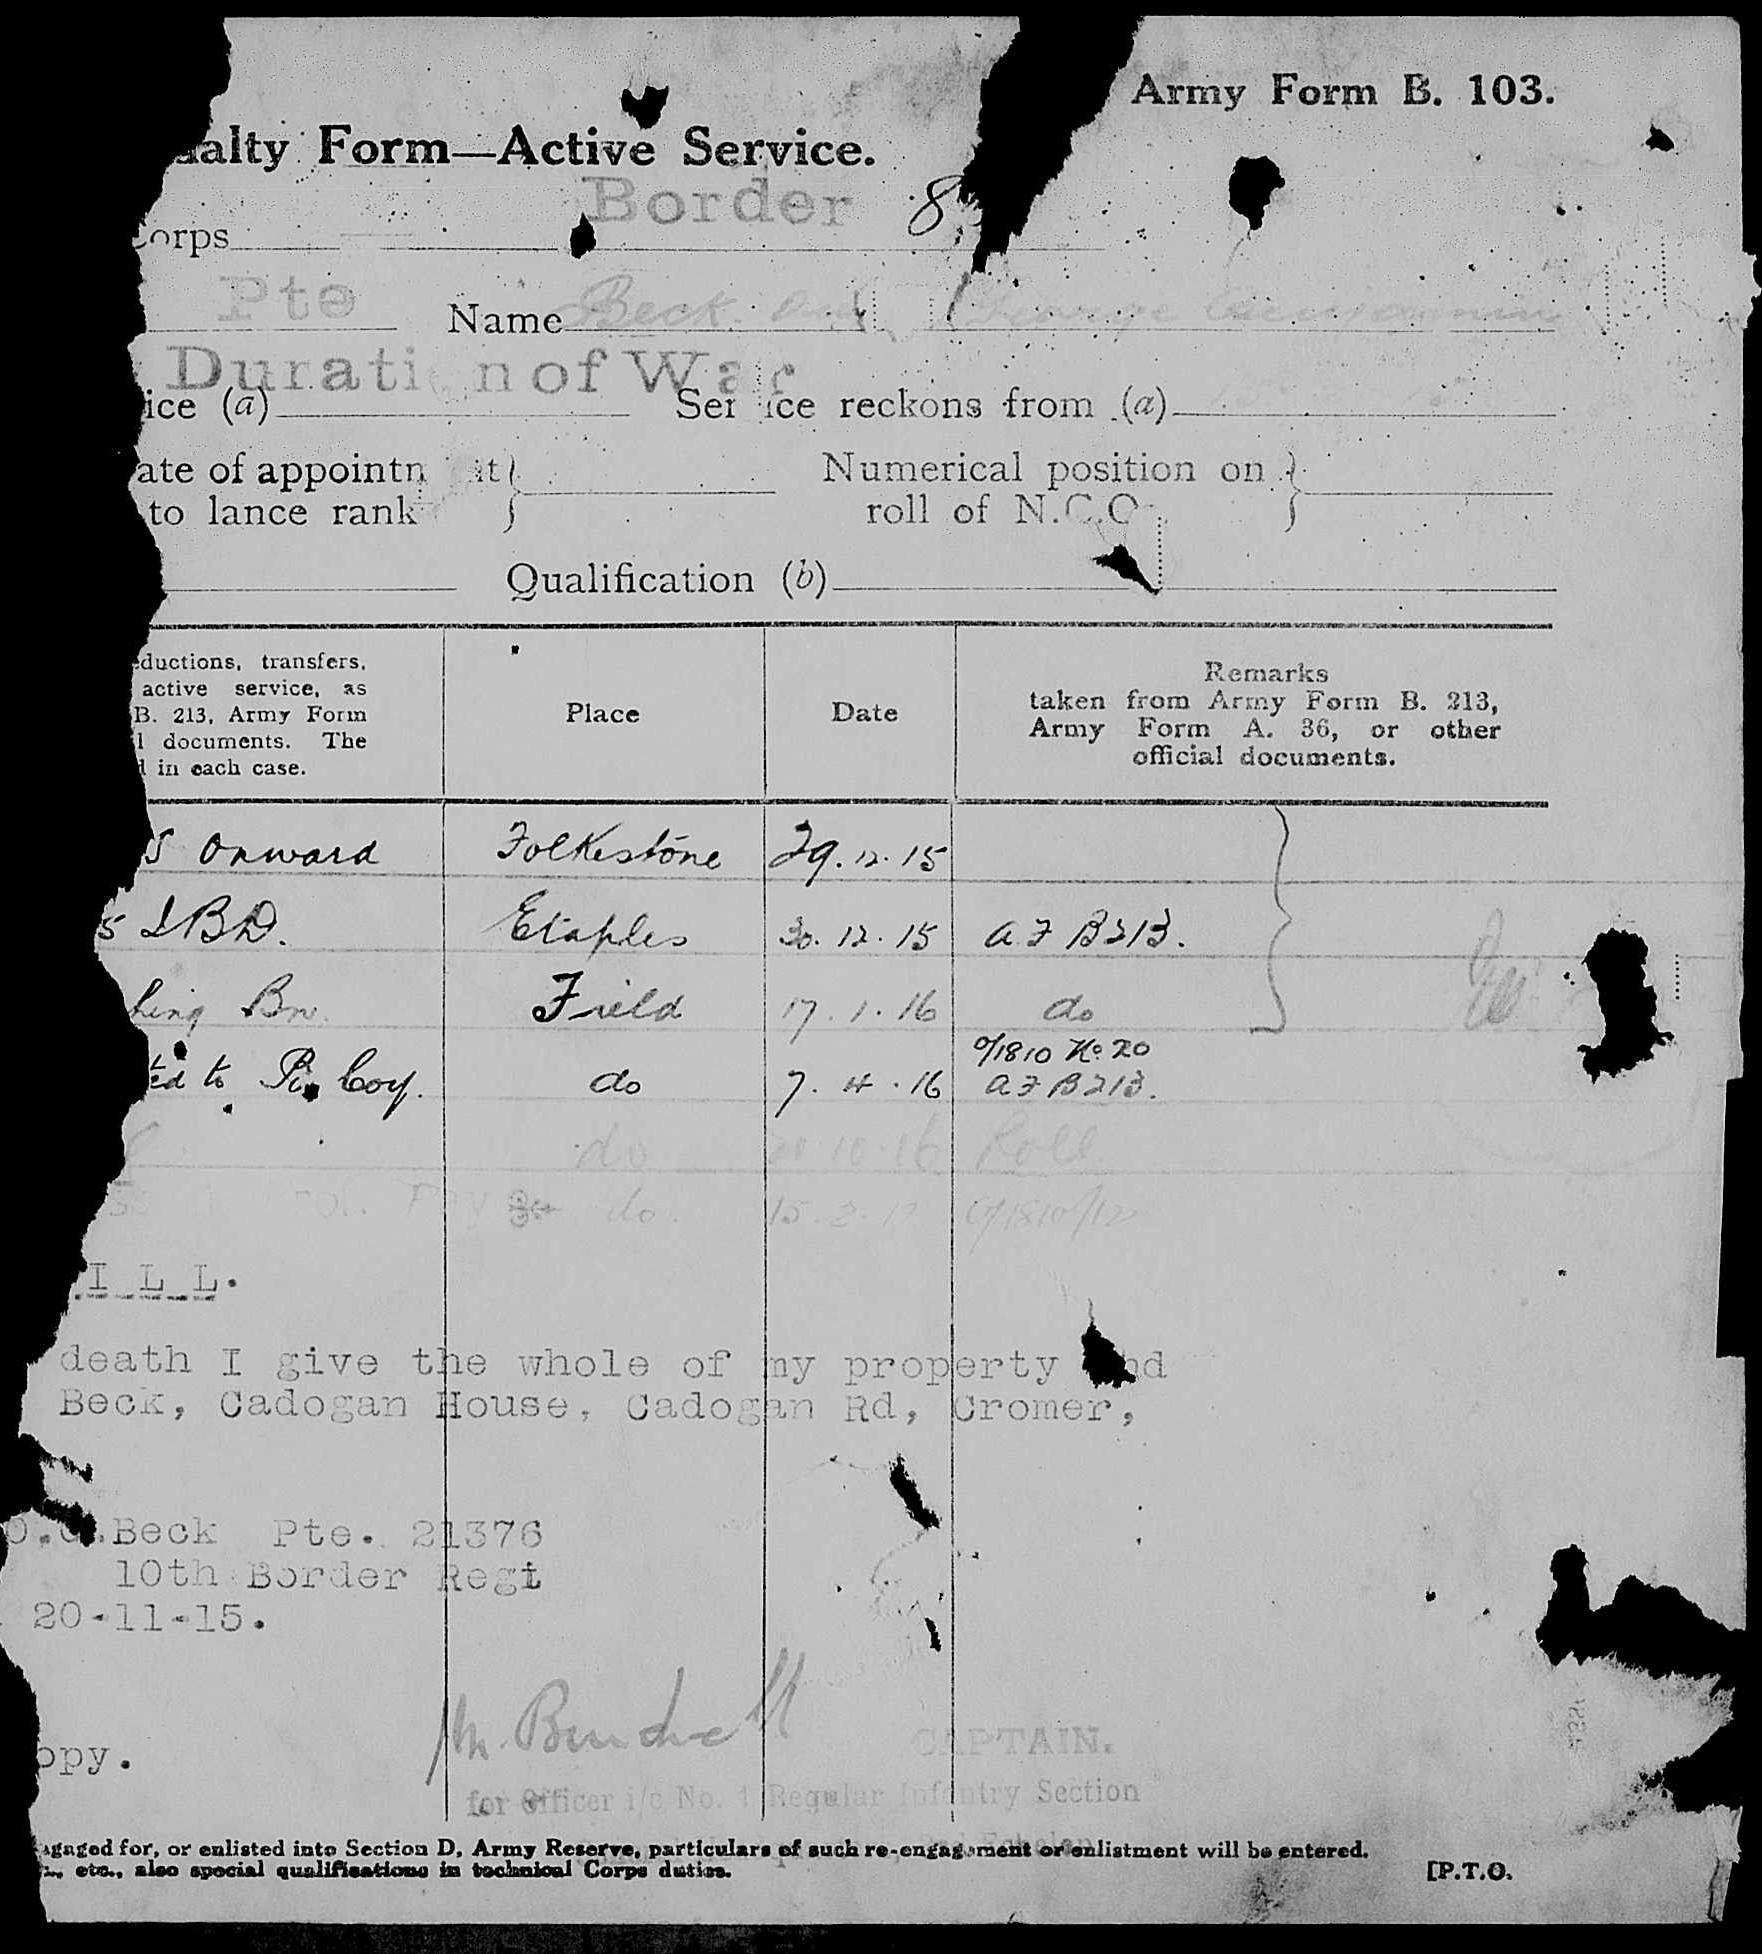 Army Form B. 103.
alty Form—Active Service.
Border 8
Corps
Pte Name Beck George
Duration of War
ice (a) Service reckons from (a)
ate of appointment Numerical position on
to lance rank roll of N.C.O.
Qualification (b)
ductions, transfers,
active service, as
B. 213, Army Form
documents. The
in each case.
Place
Date
Remarks
taken from Army Form B. 213,
Army Form A. 36, or other
official documents.
S Onward Folkestone 29.12.15
5 IBD. Etaples 30.12.15 A F B213.
hing Bn. Field 17.1.16 do
O/1810 No 20
ted to Coy. do 7.4.16 A F B213.
do 10.16 Roll
do. 15. O/1810/12
I L L.
death I give the whole of my property and
Beck, Cadogan House, Cadogan Rd, Cromer,
Beck Pte. 21376
10th Border Regt
20-11-15.
opy.
CAPTAIN.
for Officer i/c No. 1 Regular Infantry Section
Echelon
gaged for, or enlisted into Section D, Army Reserve, particulars of such re-engagement or enlistment will be entered.
etc., also special qualifications in technical Corps duties.
[P.T.O.